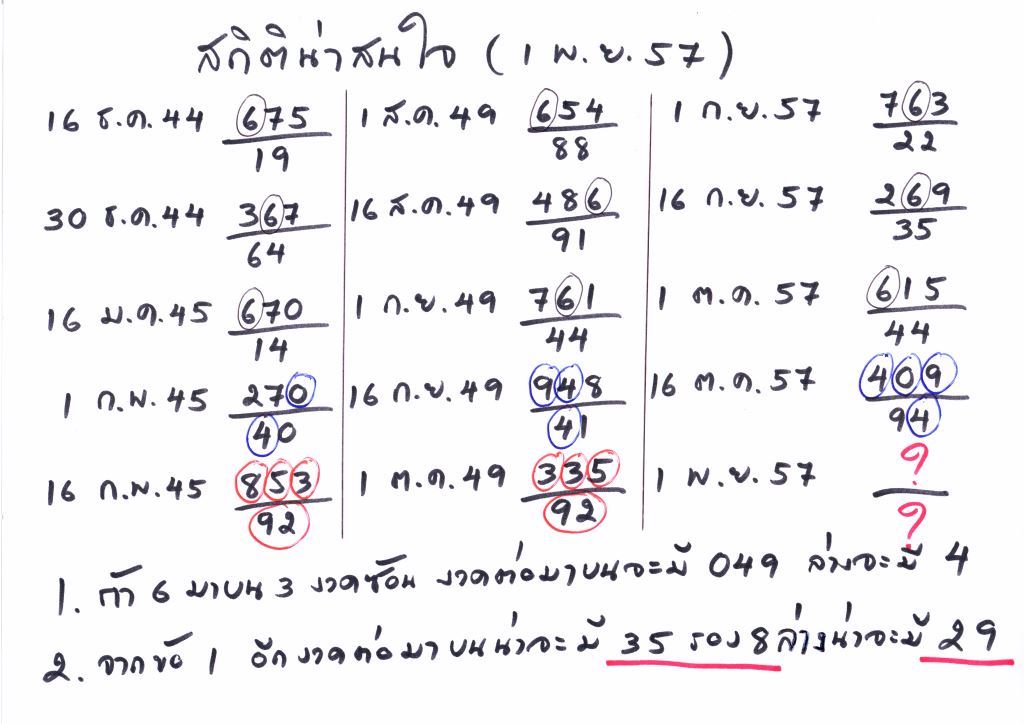 สถิติน่าสนใจ (1 พ.ย.57)
16 ธ.ค.44 675
19
30 ธ.ค.44 367
64
16 ม.ค.45 670
14
1 ก.พ.45 270
40
16 ก.พ.45 853
92
1 ส.ค.49 654
88
16 ส.ค.49 486
91
1 ก.ย.49 761
44
16 ก.ย.49 948
41
1 ต.ค.49 335
92
1 ก.ย.57 763
22
16 ก.ย.57 269
35
1 ต.ค.57 615
44
16 ต.ค.57 409
94
1 พ.ย.57 ?
?
1. ถ้า 6 มาบน 3 งวดซ้อน งวดต่อมาบนจะมี 049 ล่างจะมี 4
2. จากข้อ 1 อีกงวดต่อมาบนน่าจะมี 35 รอง 8 ล่างน่าจะมี 29